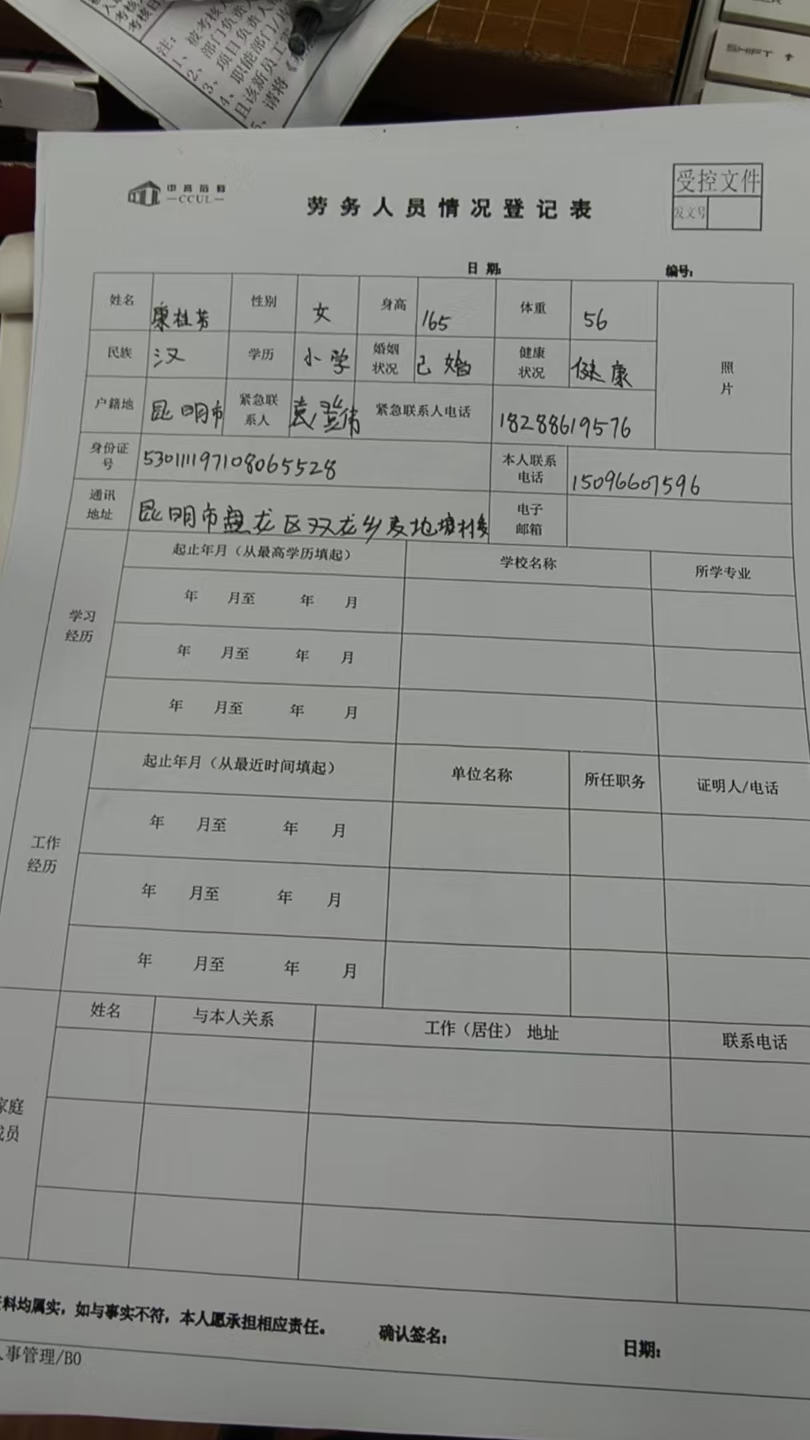 注：
1、被考核
2、部门负责
3、项目负责人
4、职能部门/
且该新员工
5、请将《
SHIFT
中高后勤
—CCUL—
劳务人员情况登记表
受控文件
发文号
日 期: 编号:
姓名 康桂芳 性别 女 身高 165 体重 56 照片
民族 汉 学历 小学 婚姻状况 已婚 健康状况 健康
户籍地 昆明市 紧急联系人 袁登伟 紧急联系人电话 18288619576
身份证号 530111197108065528 本人联系电话 15096607596
通讯地址 昆明市盘龙区双龙乡麦地塘村委 电子邮箱
学习经历 起止年月（从最高学历填起） 学校名称 所学专业
年 月至 年 月
年 月至 年 月
年 月至 年 月
工作经历 起止年月（从最近时间填起） 单位名称 所任职务 证明人/电话
年 月至 年 月
年 月至 年 月
年 月至 年 月
家庭成员 姓名 与本人关系 工作（居住） 地址 联系电话
料均属实，如与事实不符，本人愿承担相应责任。 确认签名: 日期:
人事管理/B0